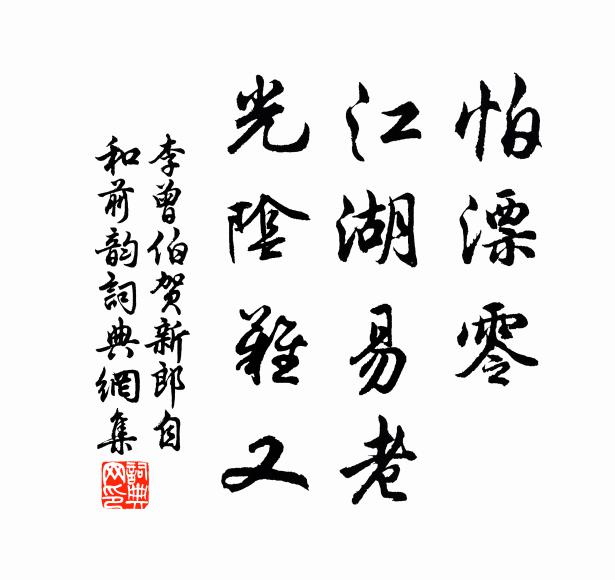 怕漂零
江湖易老
光陰難又
李曾伯贺新郎自
和前韵詞典網集
詞典网印